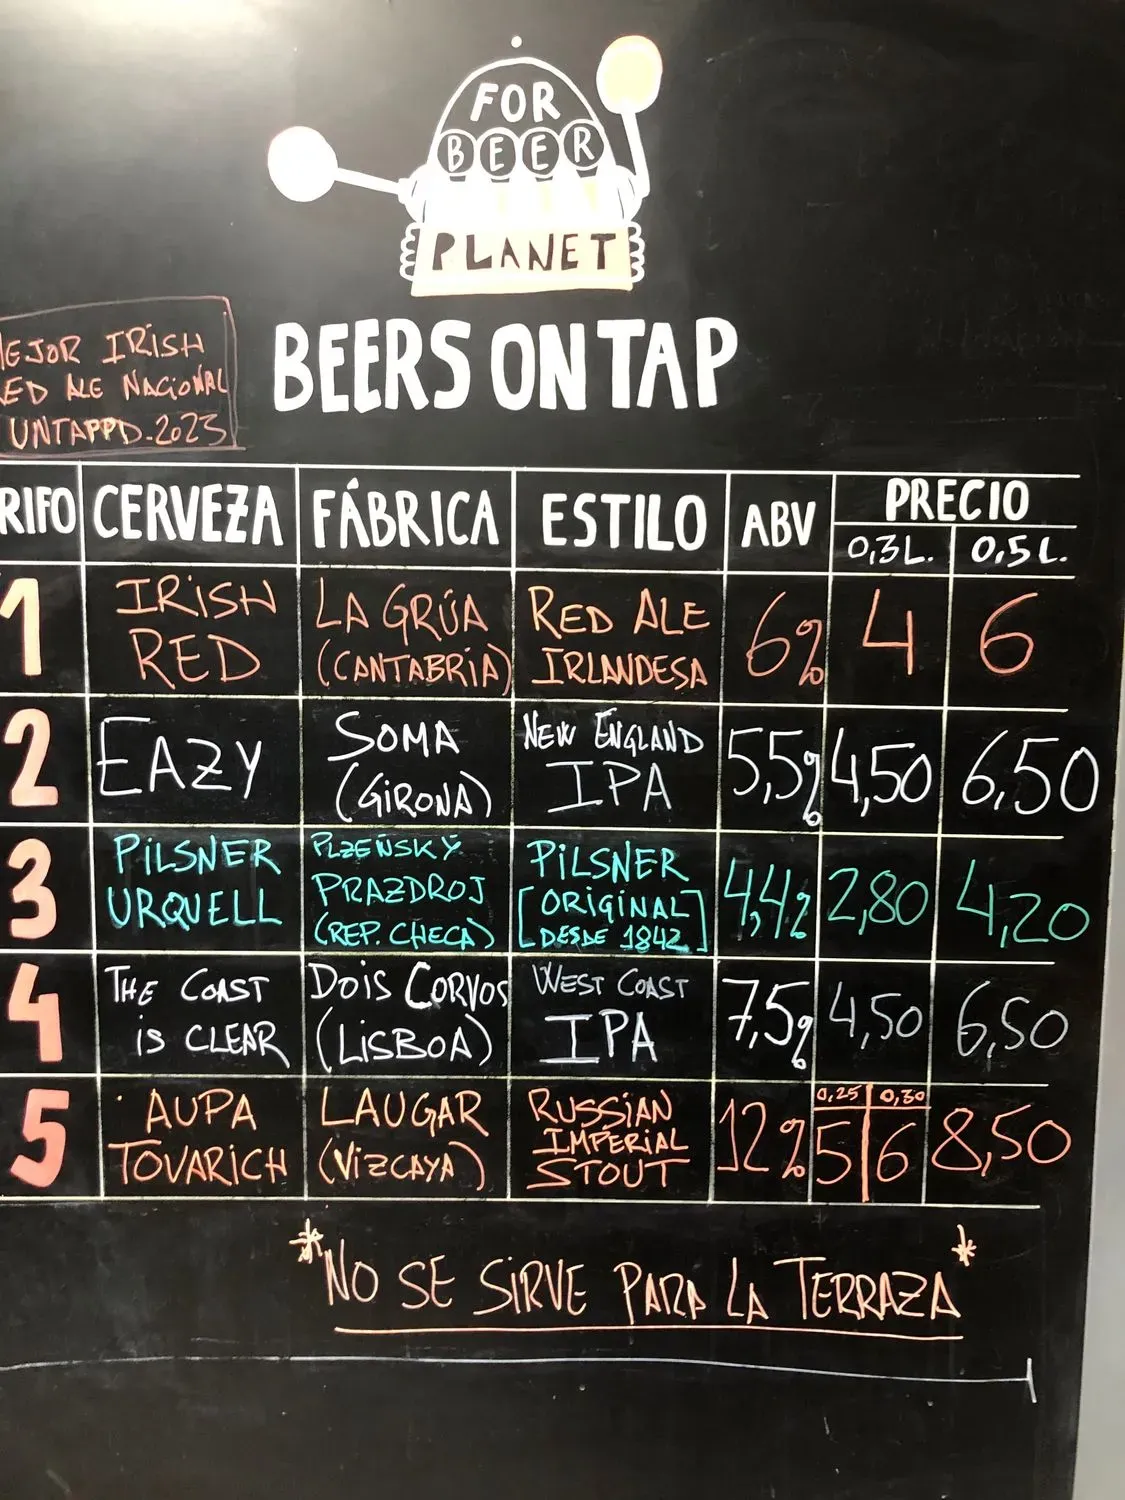 FOR
BEER
PLANET
BEERS ON TAP
EJOR IRISH
ED ALE NACIONAL
UNTAPPD-2023
RIFO CERVEZA FÁBRICA ESTILO ABV PRECIO
0,3 L. 0,5 L.
1 IRISH RED LA GRÚA (CANTABRIA) RED ALE IRLANDESA 6% 4 6
2 EAZY SOMA (GIRONA) NEW ENGLAND IPA 5,5% 4,50 6,50
3 PILSNER URQUELL PLZEŇSKÝ PRAZDROJ (REP. CHECA) PILSNER [ORIGINAL DESDE 1842] 4,4% 2,80 4,20
4 THE COAST IS CLEAR DOIS CORVOS (LISBOA) WEST COAST IPA 7,5% 4,50 6,50
5 AUPA TOVARICH LAUGAR (VIZCAYA) RUSSIAN IMPERIAL STOUT 12% 0,25 5 0,30 6 8,50
*NO SE SIRVE PARA LA TERRAZA*